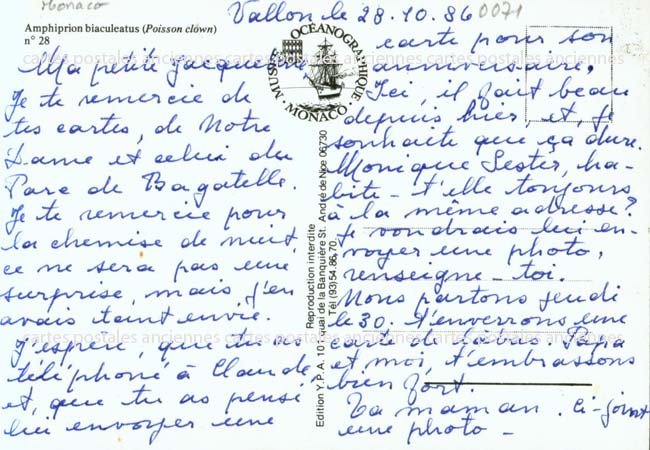 Monaco
Amphiprion biaculeatus (Poisson clown)
n° 28
Vallon le 28.10.86
0071
MUSÉE OCÉANOGRAPHIQUE · MONACO ·
Ma petite Jacqueline
Je te remercie de
tes cartes, de Notre
Dame et celui du
Parc de Bagatelle.
Je te remercie pour
la chemise de nuit
ce ne sera pas une
surprise, mais j'en
avais tant envie.
J'espère que tu as
téléphoné à Claude
et, que tu as pensé
lui envoyer une
carte pour son
anniversaire,
Ici, il fait beau
depuis hier, et, je
souhaite que ça dure.
Monique Lester, ha-
bite - t'elle toujours
à la même adresse?
Je voudrais lui en-
voyer une photo,
renseigne - toi.
Nous partons jeudi
le 30. t'enverrons une
carte de là-bas. Papa
et moi, t'embrassons
bien fort.
Ta maman. Ci-joint
une photo -
Edition Y.P.A. 10 Quai de la Banquière St. André de Nice 06730
Tél (93) 54.86.70
Reproduction interdite
cartes postales anciennes cartes postales anciennes cartes postales anciennes
cartes postales anciennes cartes postales anciennes cartes postales anciennes